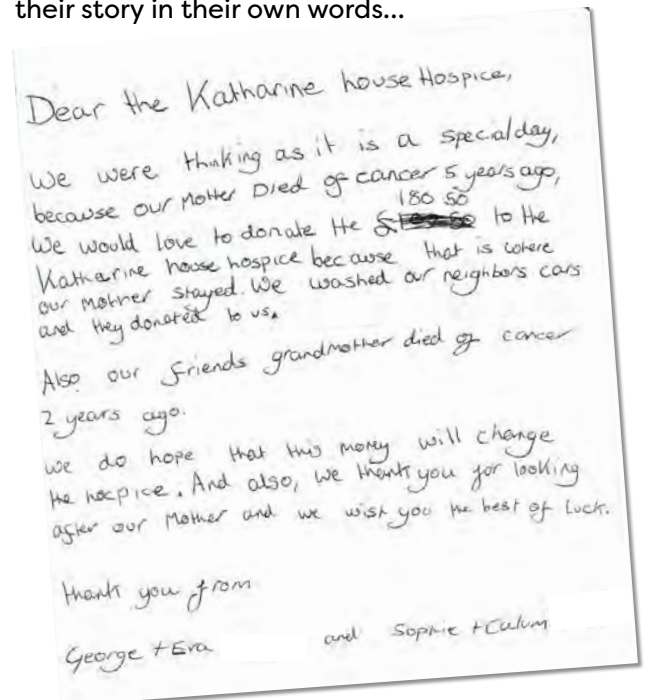 their story in their own words...
Dear the Katharine house Hospice,
We were thinking as it is a special day,
because our Mother Died of cancer 5 years ago,
180 50
We would love to donate the to the
Katharine house hospice because that is where
our Mother stayed. We washed our neighbors cars
and they donated to us.
Also our friends grandmother died of cancer
2 years ago.
we do hope that this money will change
the hocpice. And also, we thank you for looking
after our Mother and we wish you the best of luck.
thank you from
George + Eva and Sophie + Culum